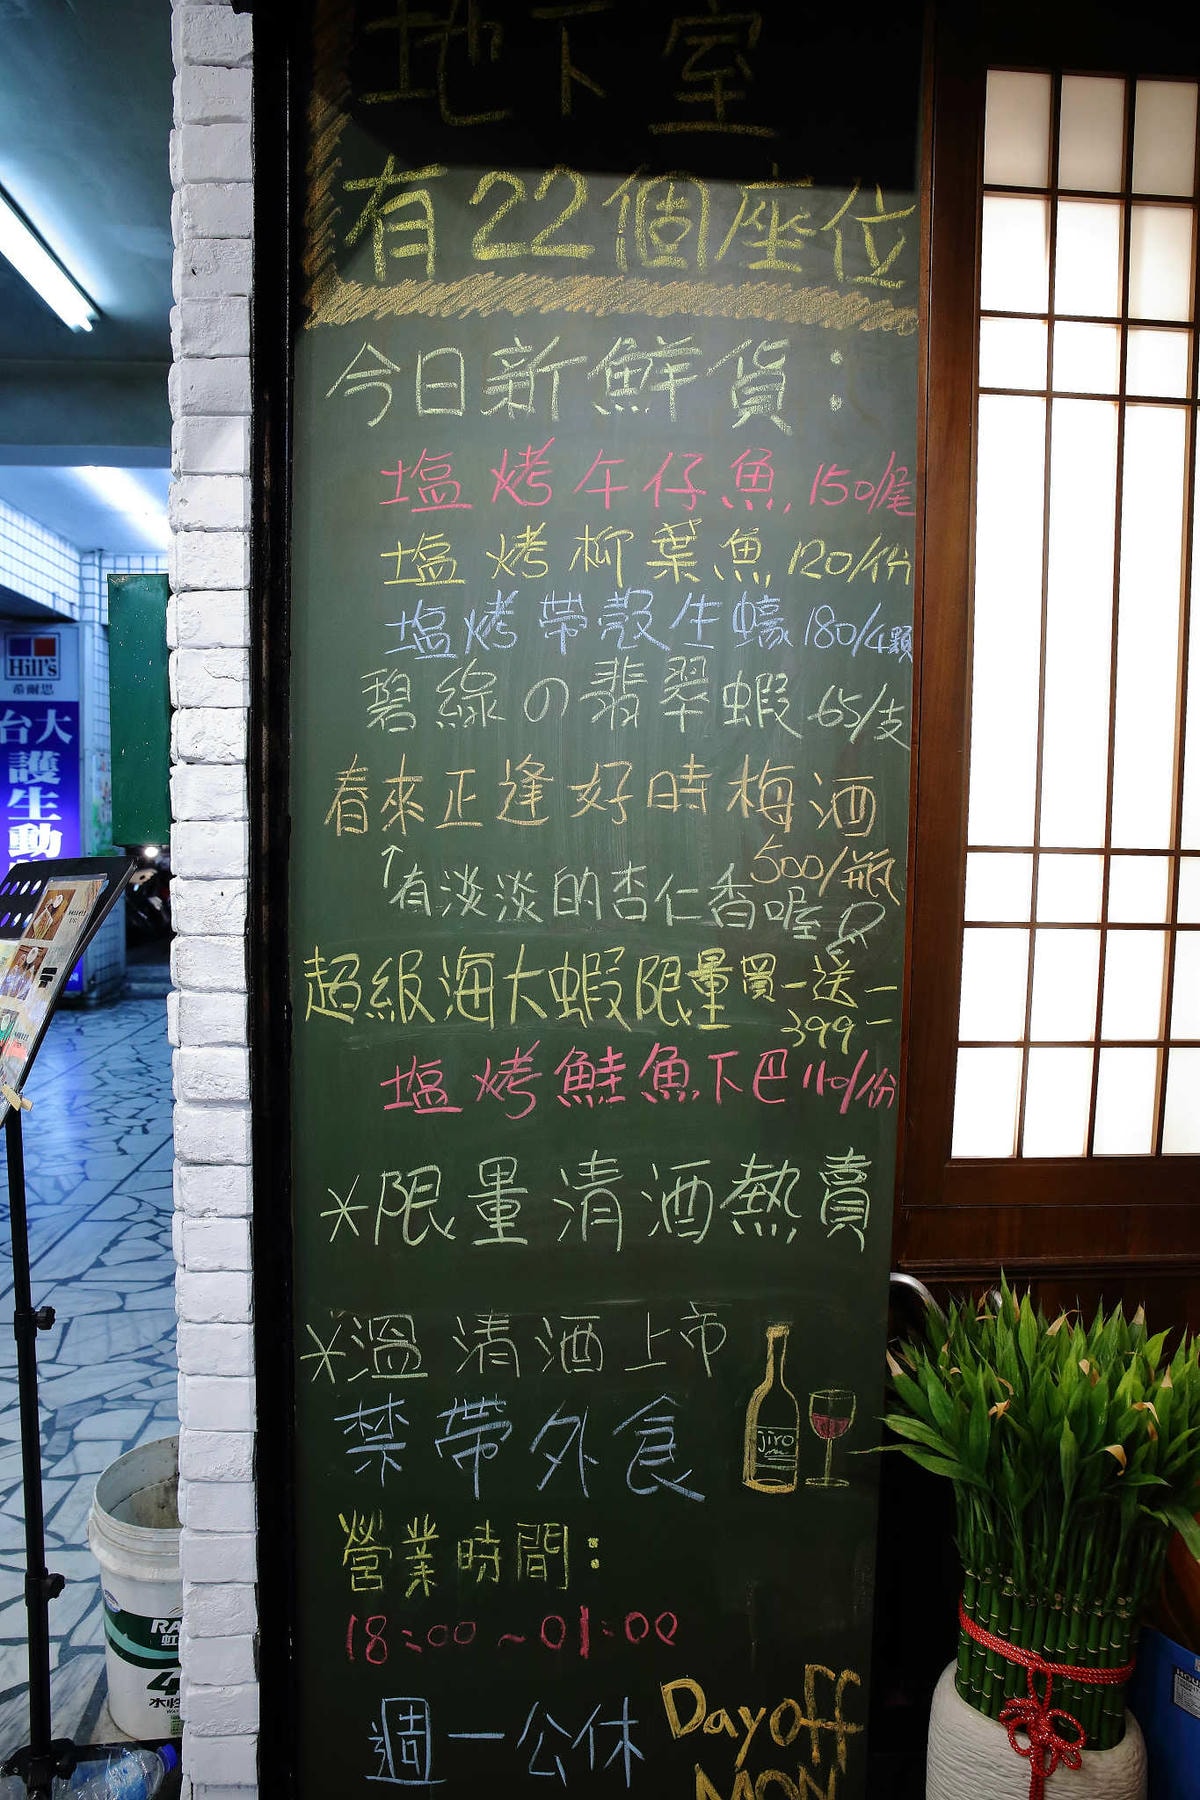 地下室
有22個座位
今日新鮮貨：
塩烤午仔魚 150/尾
塩烤柳葉魚 120/份
塩烤帶殼生蠔 180/4顆
碧綠の翡翠蝦 65/支
春來正逢好時梅酒
500/瓶
↑有淡淡的杏仁香喔
超級海大蝦限量買一送一
399
塩烤鮭魚下巴 110/份
*限量清酒熱賣
*溫清酒上市
禁帶外食
jiro
營業時間：
18:00~01:00
週一公休
Day off
MON
Hill's
希爾思
台大
護生動
RA
虹
4
水性